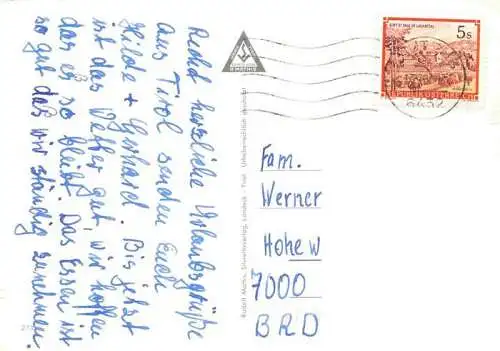 Recht herzliche Urlaubsgrüße
aus Tirol senden Euch
Hilde + Gerhard. Bis jetzt
ist das Wetter gut, wir hoffen
das es so bleibt. Das Essen ist
so gut daß wir ständig zunehmen.
Rudolf Mathis, Silvrettaverlag, Landeck - Tirol Urheberrechtlich geschützt
R MATHIS
STIFT ST. PAUL IM LAVANTTAL
5 S
REPUBLIK ÖSTERREICH
Fam.
Werner
Hohe W
7000
BRD